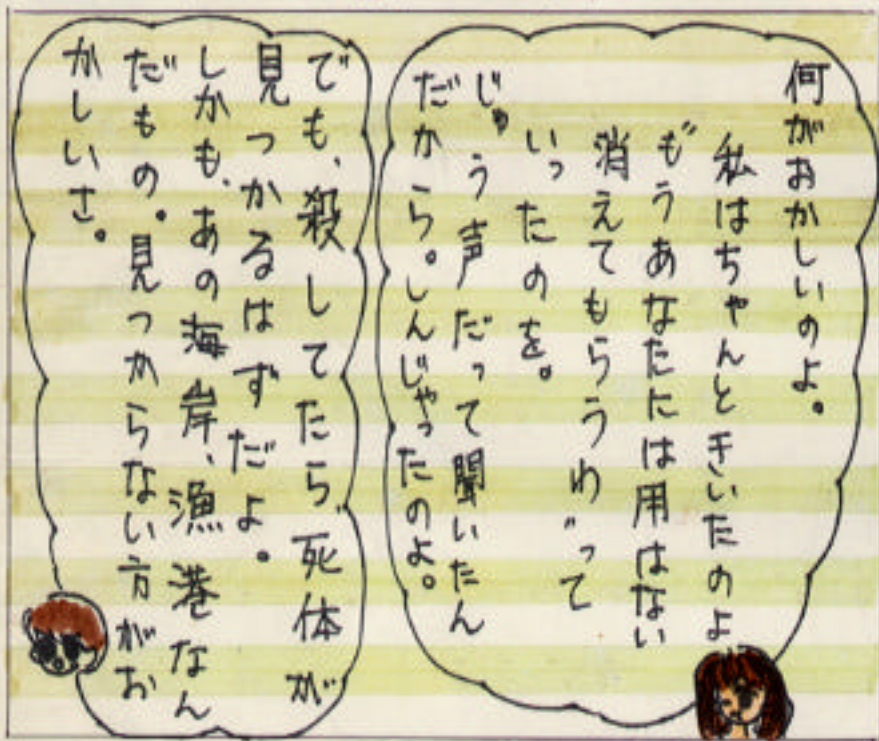 何がおかしいのよ。
私はちゃんときいたのよ
もうあなたには用はない
消えてもらうわ"って
いったのを。
じゅう声だって聞いたん
だから。しんじゃったのよ。
でも、殺してたら死体が
見つかるはずだよ。
しかも、あの海岸、漁港なん
だもの。見つからない方がお
かしいさ。